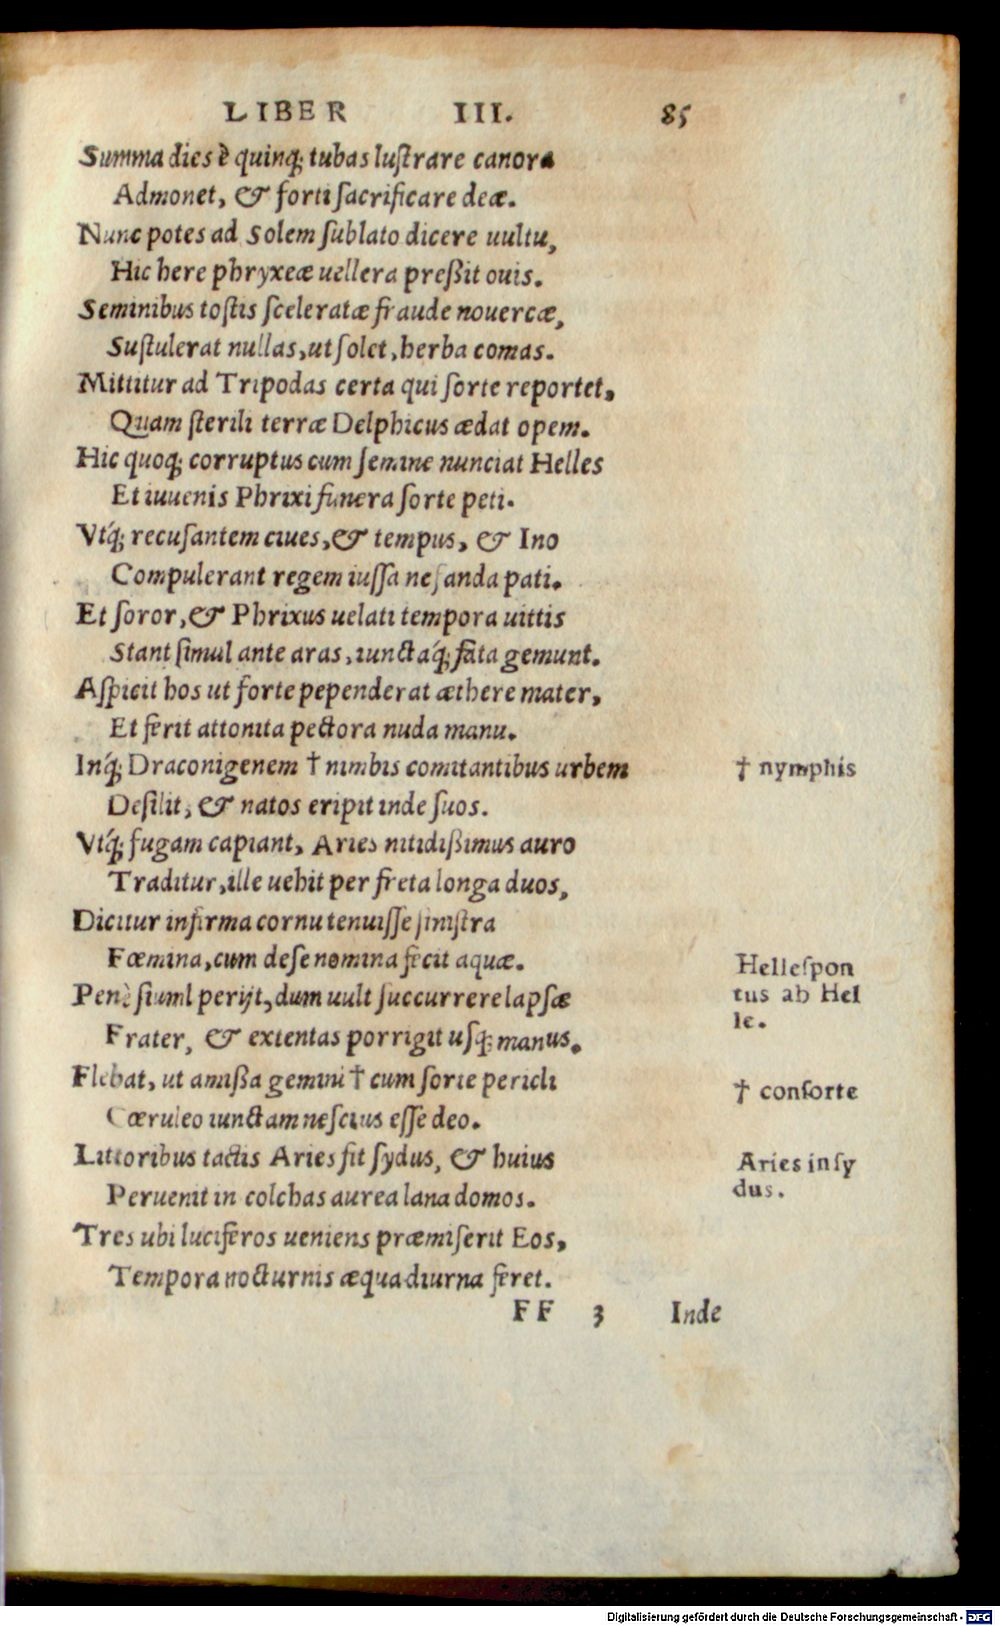 LIBER III. 85
Summa dies è quinq; tubas lustrare canora
Admonet, & forti sacrificare deæ.
Nunc potes ad Solem sublato dicere uultu,
Hic here phryxeæ uellera preßit ouis.
Seminibus tostis sceleratæ fraude nouercæ,
Sustulerat nullas, ut solet, herba comas.
Mittitur ad Tripodas certa qui sorte reportet,
Quam sterili terræ Delphicus ædat opem.
Hic quoq; corruptus cum semine nunciat Helles
Et iuuenis Phrixi funera sorte peti.
Vtq́; recusantem ciues, & tempus, & Ino
Compulerant regem iussa nefanda pati.
Et soror, & Phrixus uelati tempora uittis
Stant simul ante aras, iunctaq́; fata gemunt.
Aspicit hos ut forte pependerat æthere mater,
Et ferit attonita pectora nuda manu.
Inq́; Draconigenem † nimbis comitantibus urbem † nymphis
Desilit, & natos eripit inde suos.
Vtq́; fugam capiant, Aries nitidißimus auro
Traditur, ille uehit per freta longa duos,
Dicitur infirma cornu tenuisse sinistra
Fœmina, cum de se nomina fecit aquæ. Hellespon
Penè siuml perijt, dum uult succurrere lapsæ tus ab Hel
le.
Frater, & extentas porrigit usq; manus.
Flebat, ut amißa gemini † cum sorte pericli † consorte
Cœruleo iunctam nescius esse deo.
Littoribus tactis Aries fit sydus, & huius Aries in sy
dus.
Peruenit in colchas aurea lana domos.
Tres ubi luciferos ueniens præmiserit Eos,
Tempora nocturnis æqua diurna feret.
FF 3 Inde
Digitalisierung gefördert durch die Deutsche Forschungsgemeinschaft - DFG